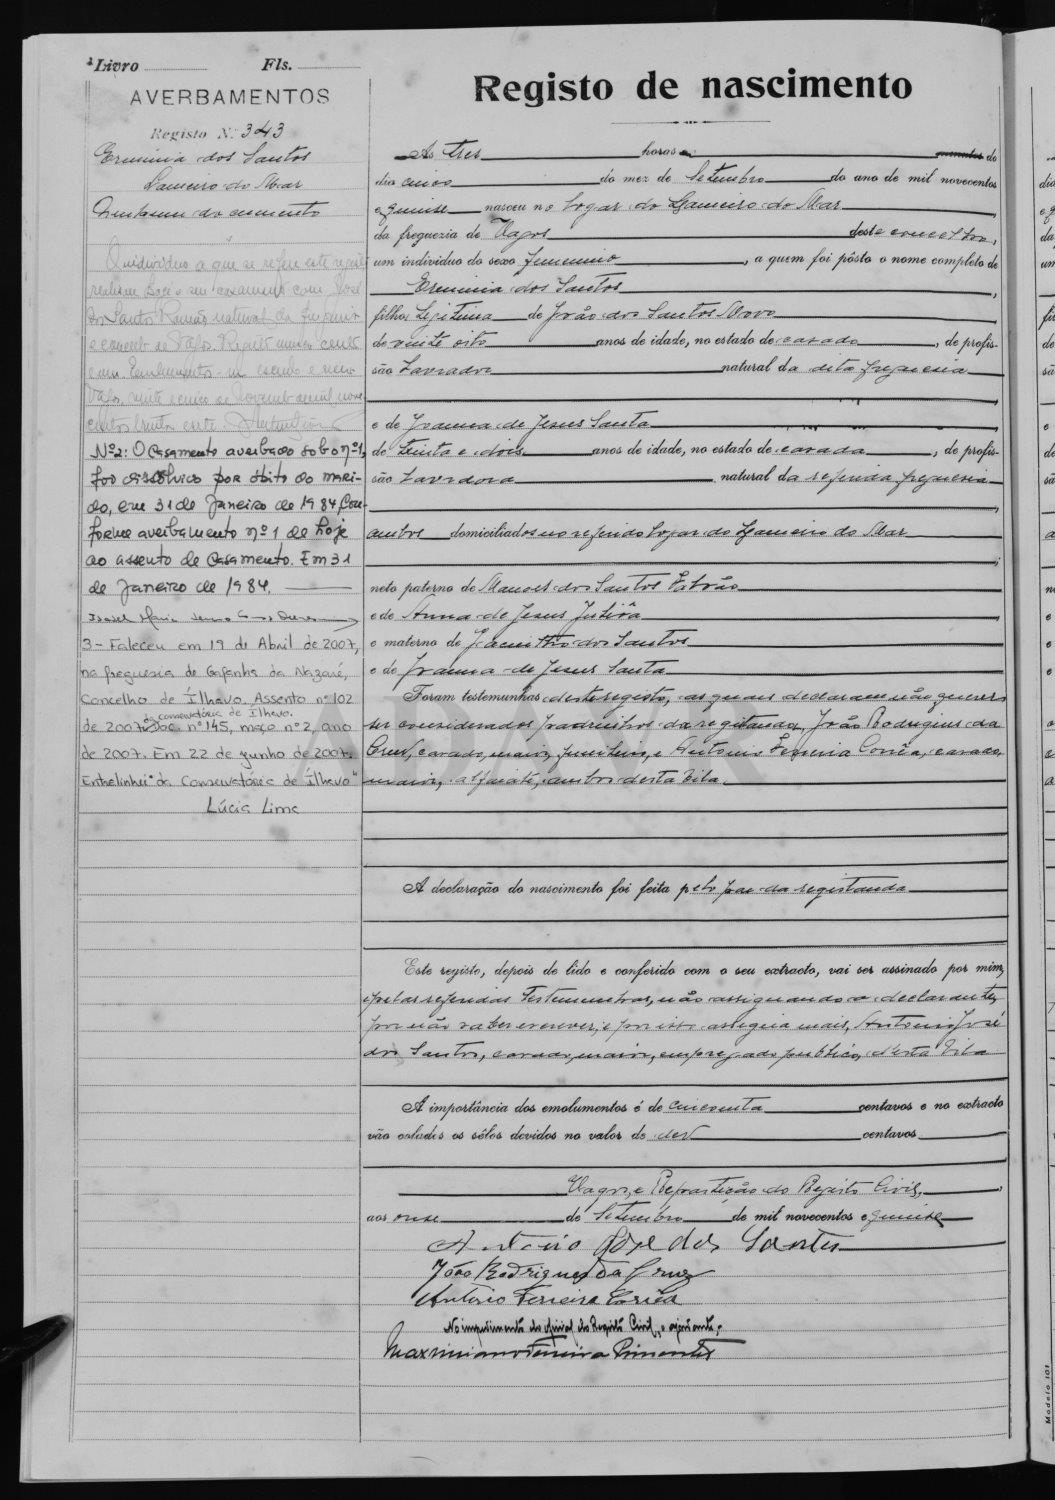 Livro Fls.
AVERBAMENTOS
Registo N.º 343
Erminia dos Santos
Lameiro do Mar
Nenhum documento
O individuo a que se refere este registo
realisou hoje o seu casamento com José
dos Santos
e concelho de Vagos.
Nº2: O Casamento averbado sob o nº1,
foi dissolvido por óbito do mari-
do, em 31 de Janeiro de 1984, Con-
forme averbamento nº 1 de hoje
ao assento de Casamento. Em 31
de Janeiro de 1984.
Isabel Maria
3 - Faleceu em 19 de Abril de 2007,
na freguesia de Gafanha da Nazaré,
Concelho de Ílhavo. Assento nº 102
da conservatória de Ílhavo.
de 2007. Doc. nº 145, maço nº 2, ano
de 2007. Em 22 de junho de 2007.
Entrelinhei "da Conservatória de Ílhavo"
Lúcia Lima
Registo de nascimento
Ás tres horas e minutos do
dia cinco do mez de Setembro do ano de mil novecentos
e quinse nasceu no logar do Lameiro do Mar,
da freguezia de Vagos deste concelho,
um individuo do sexo femenino, a quem foi pôsto o nome completo de
Erminia dos Santos,
filha legitima de João dos Santos Novo
de vinte oito anos de idade, no estado de casado, de profis-
são Lavrador natural da dita freguesia
e de Joanna de Jesus Santa,
de trinta e dois anos de idade, no estado de casada, de profis-
são Lavradora natural da referida freguesia
ambos domiciliados no referido logar do Lameiro do Mar
neto paterno de Manoel dos Santos Patrão
e de Anna de Jesus,
e materno de Jacintho dos Santos
e de Joanna de Jesus Santa
Foram testemunhas deste registo, as quaes declaram não querer
ser considerados padrinhos da registanda, João Rodrigues da
Cruz, casado, maior, funileiro, e Antonio Ferreira Corrêa, casado,
maior, alfaiate, ambos desta vila
A declaração do nascimento foi feita pelo pae da registanda
Este registo, depois de lido e conferido com o seu extracto, vai ser assinado por mim,
e pelas referidas testemunhas, não assignando o declarante,
por não saber escrever, e por isso assigna mais, Antonio José
dos Santos, casado, maior, empregado publico, desta vila
A importância dos emolumentos é de cincoenta centavos e no extracto
vão colados os sêlos devidos no valor de dez centavos
Vagos, e Repartição do Registo Civil,
aos onse de Setembro de mil novecentos e quinse
Antonio José dos Santos
João Rodrigues da Cruz
Antonio Ferreira Corrêa
No impedimento do oficial do Registo Civil, o ajudante,
Maximiano Ferreira Pimentel
Modelo 101